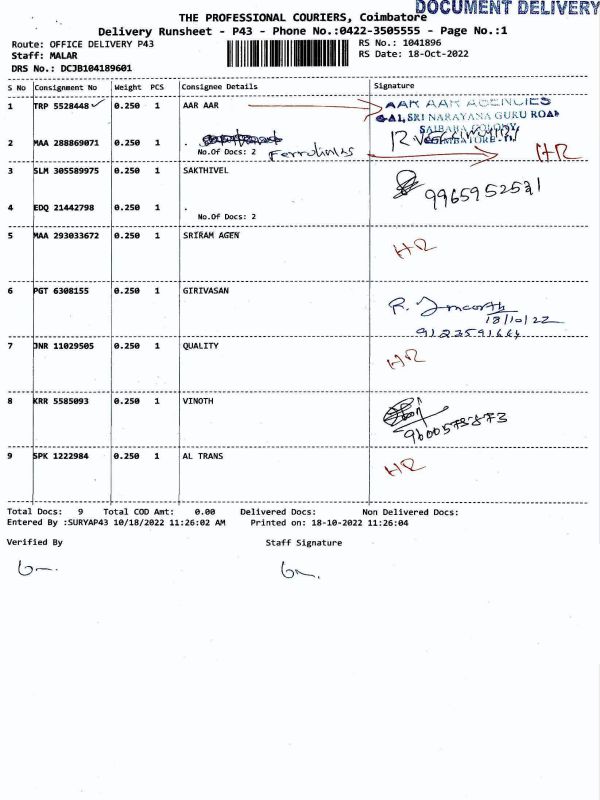 DOCUMENT DELIVERY
THE PROFESSIONAL COURIERS, Coimbatore
Delivery Runsheet - P43 - Phone No.:0422-3505555 - Page No.:1
Route: OFFICE DELIVERY P43 RS No.: 1041896
Staff: MALAR RS Date: 18-Oct-2022
DRS No.: DCJB104189601
S No Consignment No Weight PCS Consignee Details Signature
1 TRP 5528448 0.250 1 AAR AAR AAR AAR AGENCIES
SRI NARAYANA GURU ROAD
SAIBABA COLONY,
COIMBATORE
2 MAA 288869071 0.250 1 . HR
No.Of Docs: 2
3 SLM 305589975 0.250 1 SAKTHIVEL 9965952521
4 EDQ 21442798 0.250 1 .
No.Of Docs: 2
5 MAA 293033672 0.250 1 SRIRAM AGEN HR
6 PGT 6308155 0.250 1 GIRIVASAN
18/10/22
7 JNR 11029505 0.250 1 QUALITY HR
8 KRR 5585093 0.250 1 VINOTH
9600573873
9 SPK 1222984 0.250 1 AL TRANS HR
Total Docs: 9 Total COD Amt: 0.00 Delivered Docs: Non Delivered Docs:
Entered By :SURYAP43 10/18/2022 11:26:02 AM Printed on: 18-10-2022 11:26:04
Verified By Staff Signature